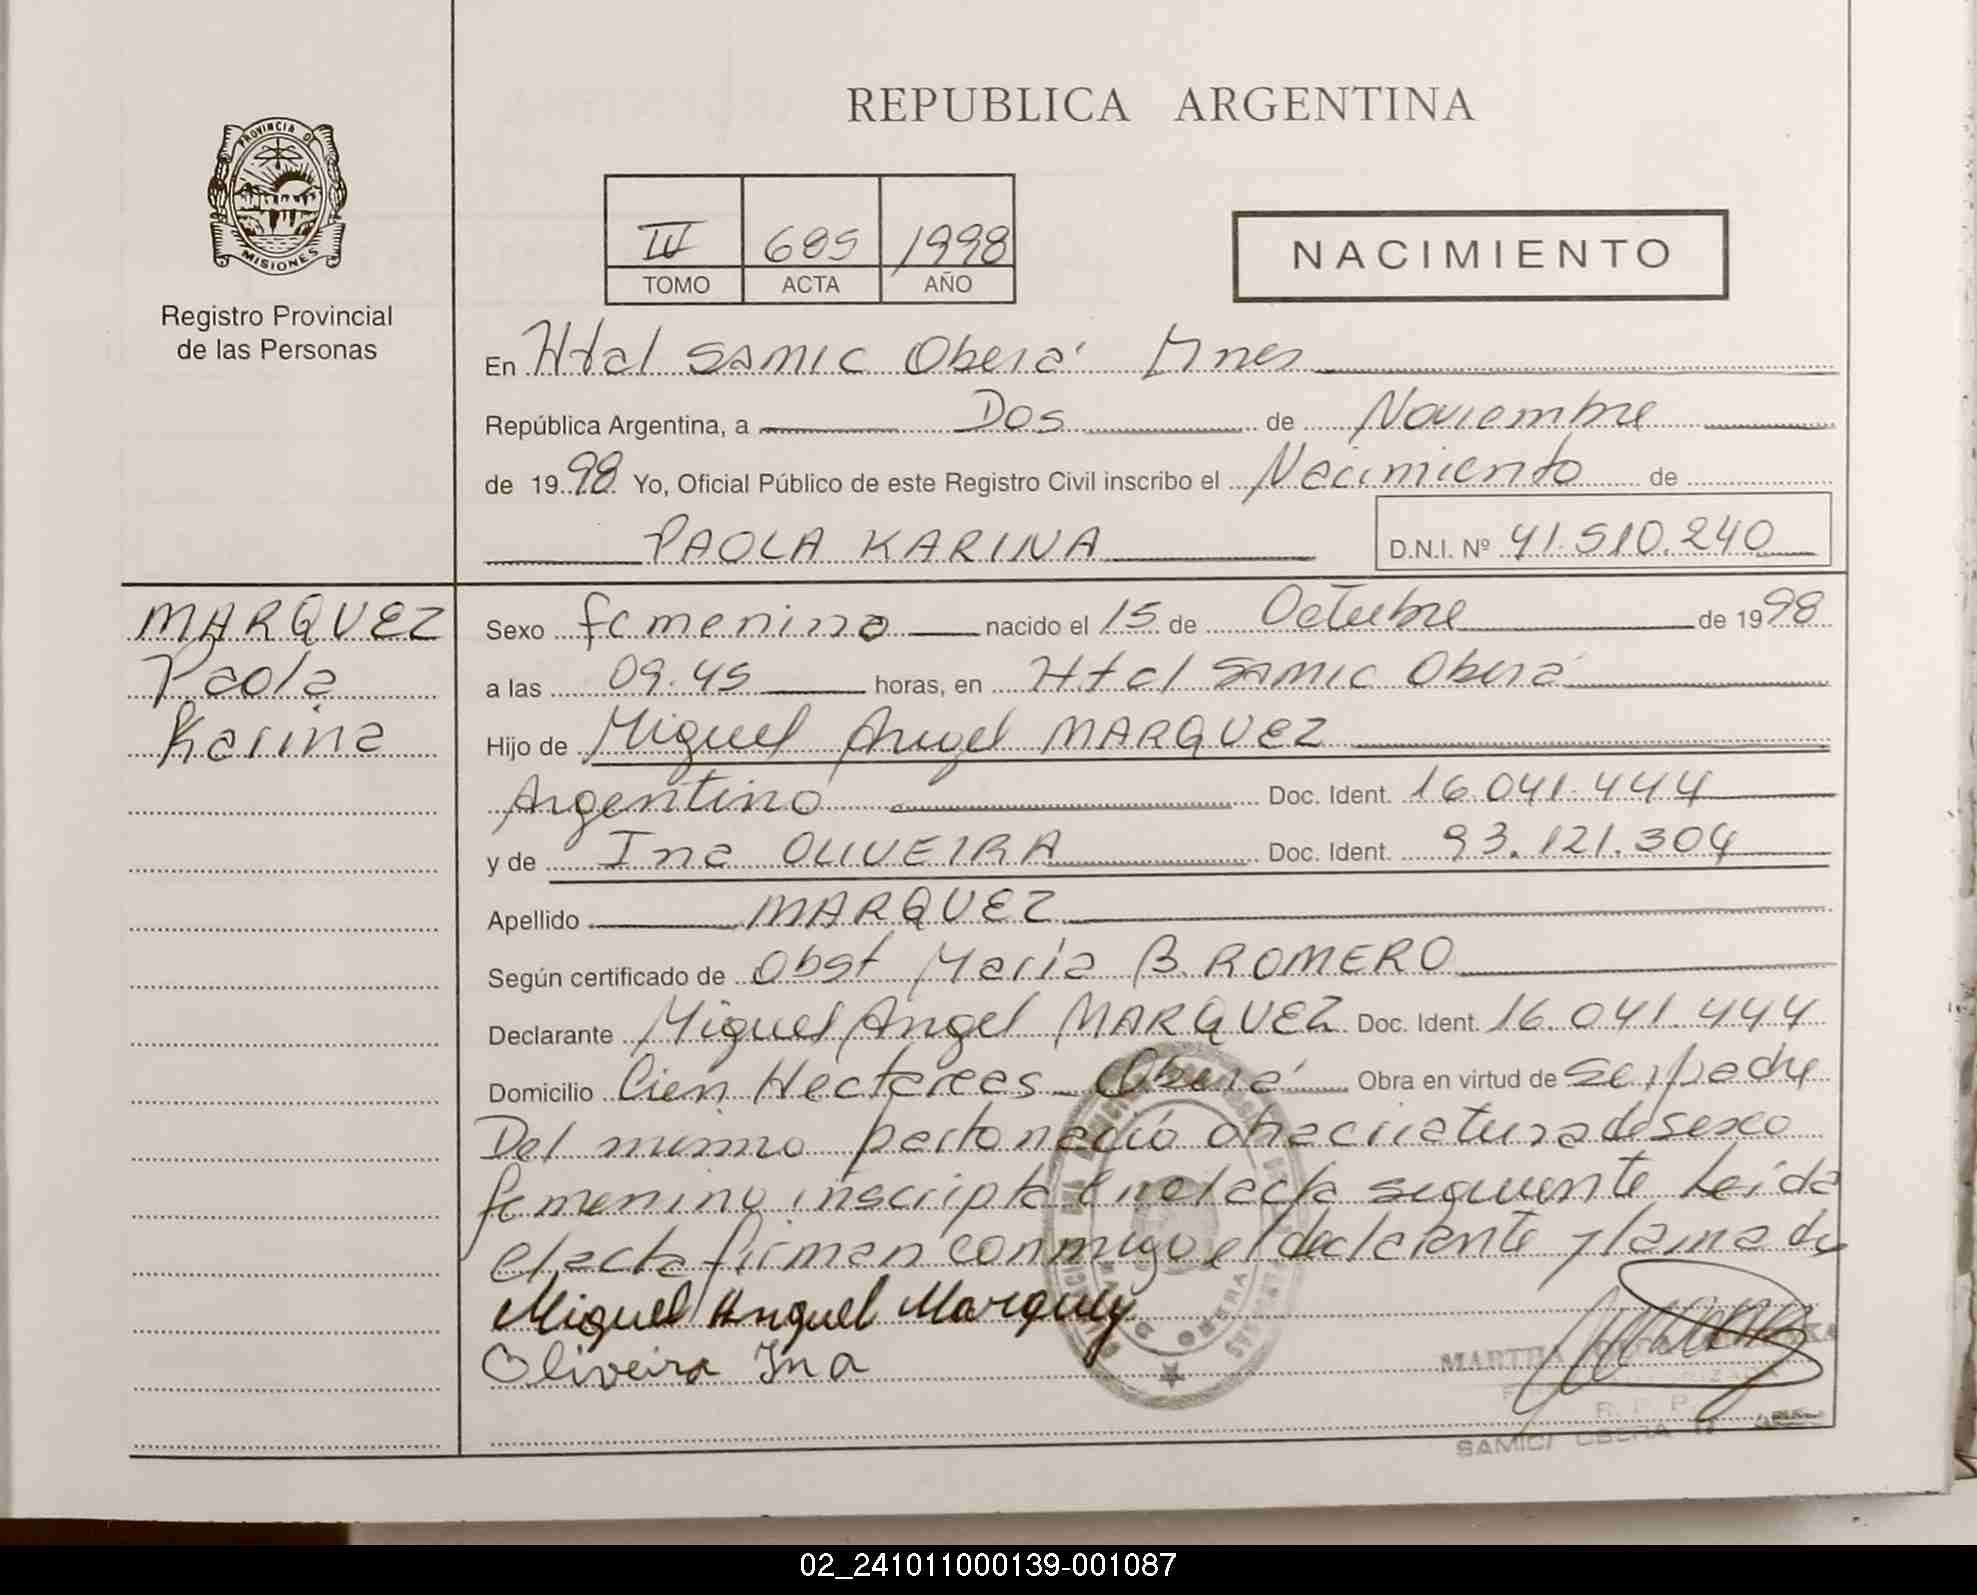 PROVINCIA DE
MISIONES
Registro Provincial
de las Personas
REPUBLICA ARGENTINA
III 685 1998
TOMO ACTA AÑO
NACIMIENTO
En Htal SAMIC Oberá Mnes
República Argentina, a Dos de Noviembre
de 1998 Yo, Oficial Público de este Registro Civil inscribo el Nacimiento de
PAOLA KARINA D.N.I. Nº 41.510.240
MARQUEZ
Paola
Karina
Sexo femenino nacido el 15 de Octubre de 1998
a las 09.45 horas, en Htal SAMIC Oberá
Hijo de Miguel Angel MARQUEZ
Argentino Doc. Ident. 16.041.444
y de Ina OLIVEIRA Doc. Ident. 93.121.304
Apellido MARQUEZ
Según certificado de Obst María B. ROMERO
Declarante Miguel Angel MARQUEZ Doc. Ident. 16.041.444
Domicilio Cien Hectareas Oberá Obra en virtud de ser padre
Del mismo parto nació otra criatura de sexo
femenino inscripta en el acta siguiente Leída
el acta firman conmigo el declarante y la madre
Miguel Anguel Marquez
Oliveira Ina
MARTHA
R. P. P.
SAMIC OBERA
02_241011000139-001087